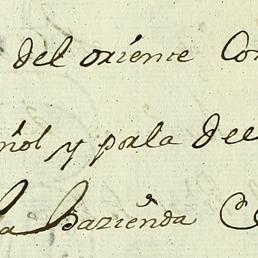 del oriente Con
ñol y porla del
la hazienda C